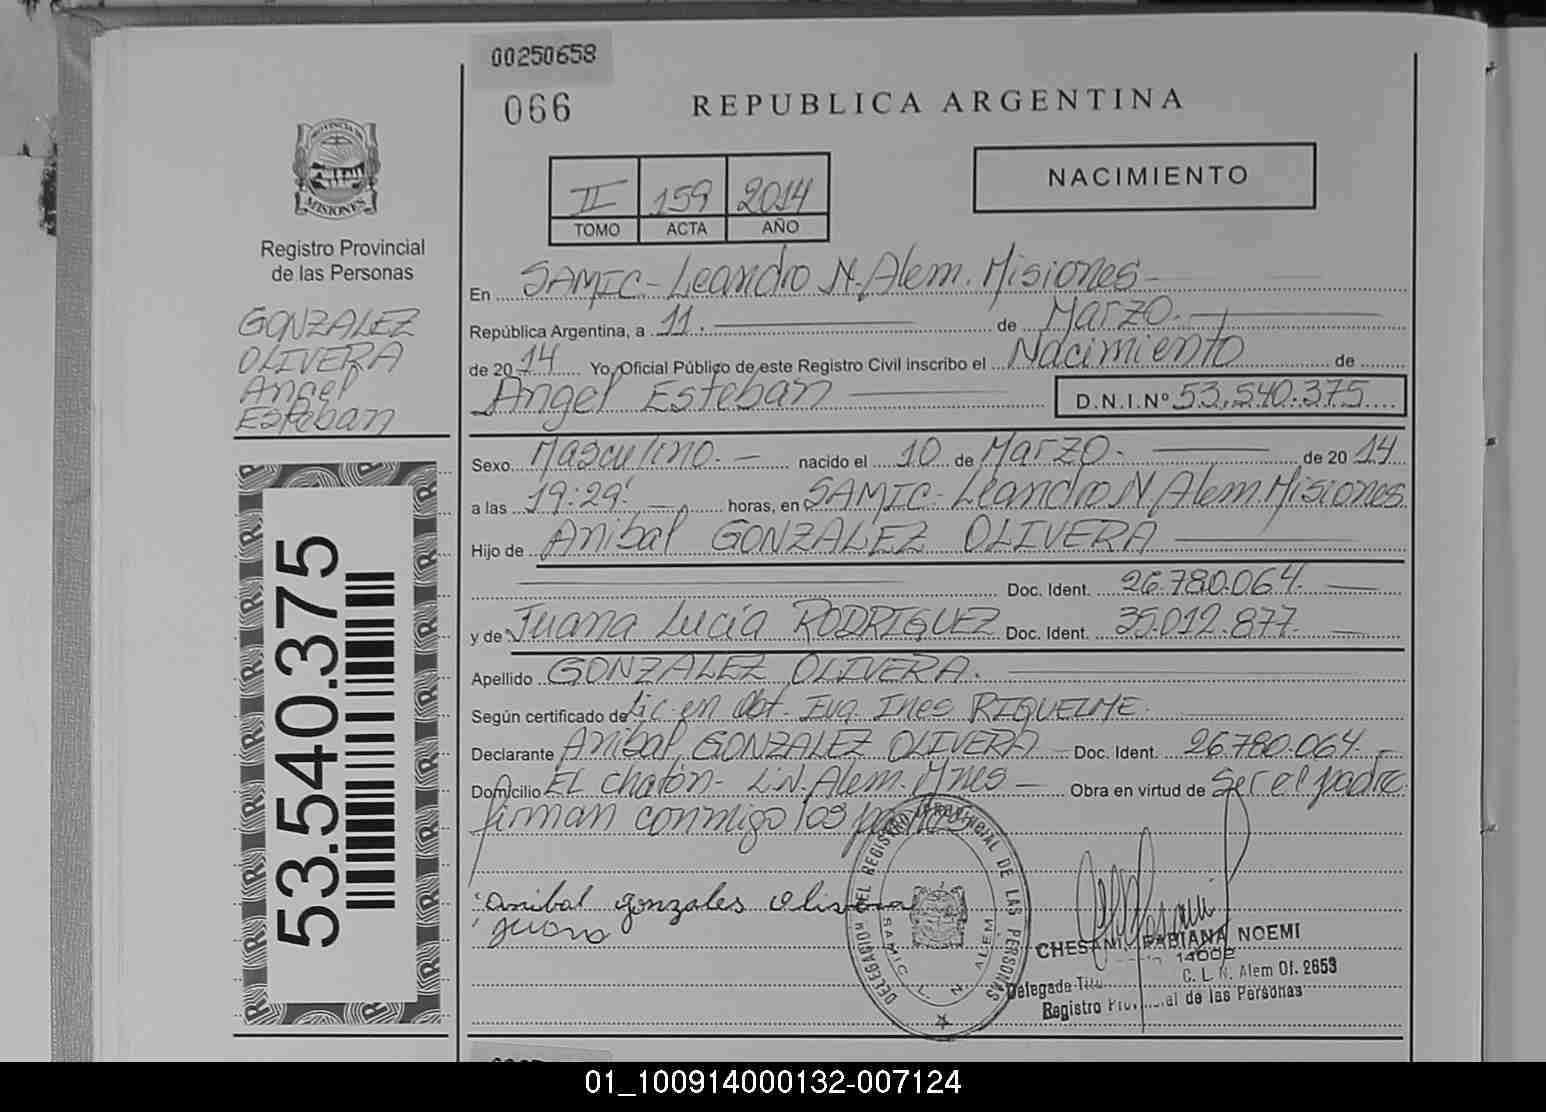 00250658
066
REPUBLICA ARGENTINA
PROVINCIA DE
MISIONES
Registro Provincial
de las Personas
II 159 2014
TOMO ACTA AÑO
NACIMIENTO
GONZALEZ
OLIVERA
Angel
Esteban
En SAMIC - Leandro N. Alem. Misiones
República Argentina, a 11. de Marzo.
de 20 14 Yo, Oficial Público de este Registro Civil inscribo el Nacimiento de
Angel Esteban D.N.I.Nº 53.540.375
Sexo Masculino. nacido el 10 de Marzo. de 20 14
a las 19:29. horas, en SAMIC - Leandro N. Alem. Misiones.
Hijo de Anibal GONZALEZ OLIVERA
Doc. Ident. 26.780.064.
y de Juana Lucía RODRIGUEZ Doc. Ident. 35.012.877.
Apellido GONZALEZ OLIVERA.
Según certificado de Lic. en Obt. Eug. Ines RIQUELME.
Declarante Anibal GONZALEZ OLIVERA Doc. Ident. 26.780.064.
Domicilio EL Chatón - L.N. Alem. Mnes Obra en virtud de Ser el padre
firman conmigo los padres
anibal gonzales olivera
Juana
53.540.375
DELEGACION DEL REGISTRO PROVINCIAL DE LAS PERSONAS
SAMIC L. N. ALEM
CHESANI FABIANA NOEMI
14002
C. L. N. Alem Of. 2653
Delegada
Registro de las Personas
01_100914000132-007124